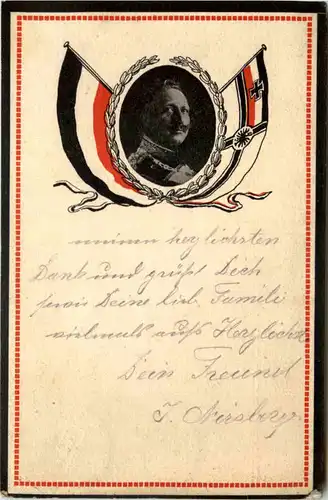 meinen herzlichsten
Dank und grüßt Dich
sowie Deine lieb. Famili
vielmals aufs Herzlichste
Dein Freund
J.